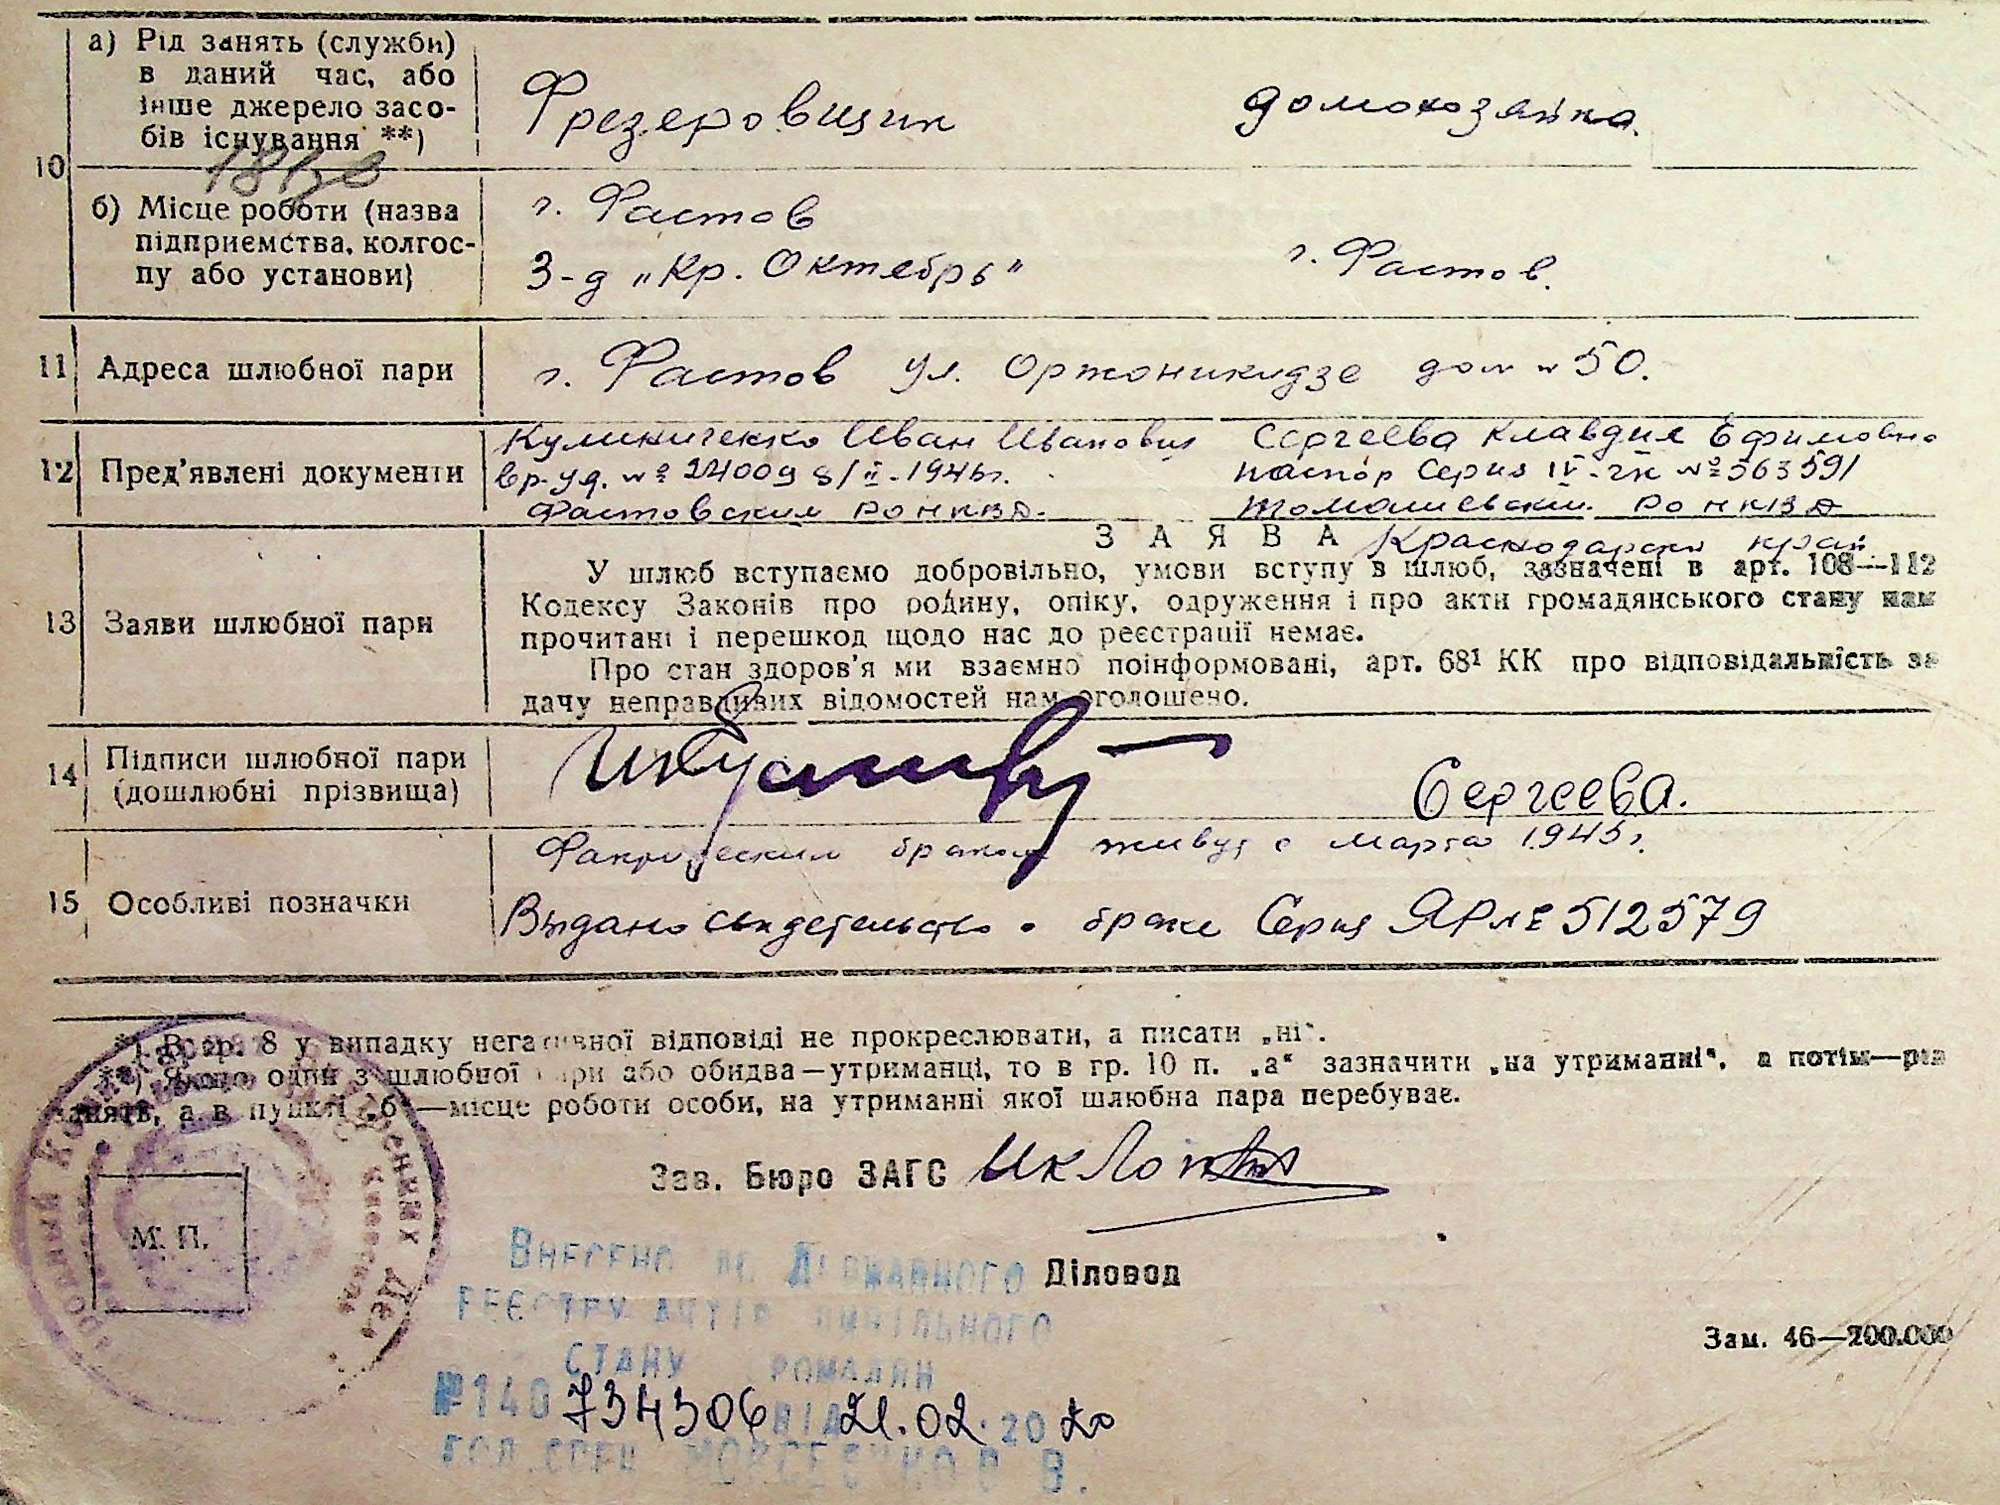 а) Рід занять (служби)
в даний час, або
інше джерело засо-
бів існування **)
Фрезеровщик
домохозяйка.
10
б) Місце роботи (назва
підприємства, колгос-
пу або установи)
г. Фастов
З-д „Кр. Октябрь"
г. Фастов.
11 Адреса шлюбної пари
г. Фастов ул. Оржоникидзе дом № 50.
12 Пред'явлені документи
Иван Иванович
вр. уд. № 24009 8/II-1945г.
Фастовским РОНКВД.
Сергеева Клавдия Ефимовна
паспор Серия IV-ЧК № 563591
РОНКВД
Краснодарски край.
13 Заяви шлюбної пари
ЗАЯВА
У шлюб вступаємо добровільно, умови вступу в шлюб, зазначені в арт. 108—112
Кодексу Законів про родину, опіку, одруження і про акти громадянського стану нам
прочитані і перешкод щодо нас до реєстрації немає.
Про стан здоров'я ми взаємно поінформовані, арт. 68¹ КК про відповідальність за
дачу неправдивих відомостей нам оголошено.
14 Підписи шлюбної пари
(дошлюбні прізвища)
Сергеева.
15 Особливі позначки
Фактическим браком живут с марта 1945г.
Выдано свидетельство о браке Серия ЯР № 512579
*) В гр. 8 у випадку негативної відповіді не прокреслювати, а писати „ні".
**) Якщо один з шлюбної пари або обидва—утриманці, то в гр. 10 п. „а" зазначити „на утриманні", а потім—рід
занять, а в пункті „б"—місце роботи особи, на утриманні якої шлюбна пара перебуває.
Зав. Бюро ЗАГС
М. П.
Діловод
Внесено до Державного
реєстру актів цивільного
стану громадян
№140 734306 від 21.02.2020
Гол. спец
Зам. 46—200.000